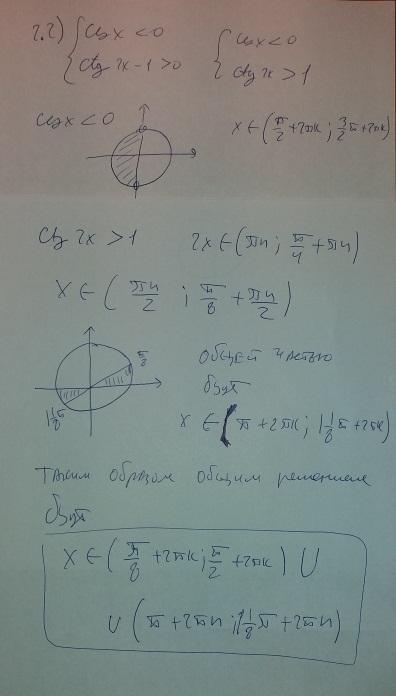 2.2) { cos x < 0
ctg 2x - 1 > 0
{ cos x < 0
ctg 2x > 1
cos x < 0
x ∈ (π/2 + 2πk ; 3/2 π + 2πk)
ctg 2x > 1
2x ∈ (πn ; π/4 + πn)
x ∈ ( πn/2 ; π/8 + πn/2 )
π/8
1 1/8 π
общей частью
будет
x ∈ ( π + 2πk ; 1 1/8 π + 2πk)
Таким образом общим решением
будет
x ∈ ( π/8 + 2πk ; π/2 + 2πk ) ∪
∪ ( π + 2πn ; 1 1/8 π + 2πn )